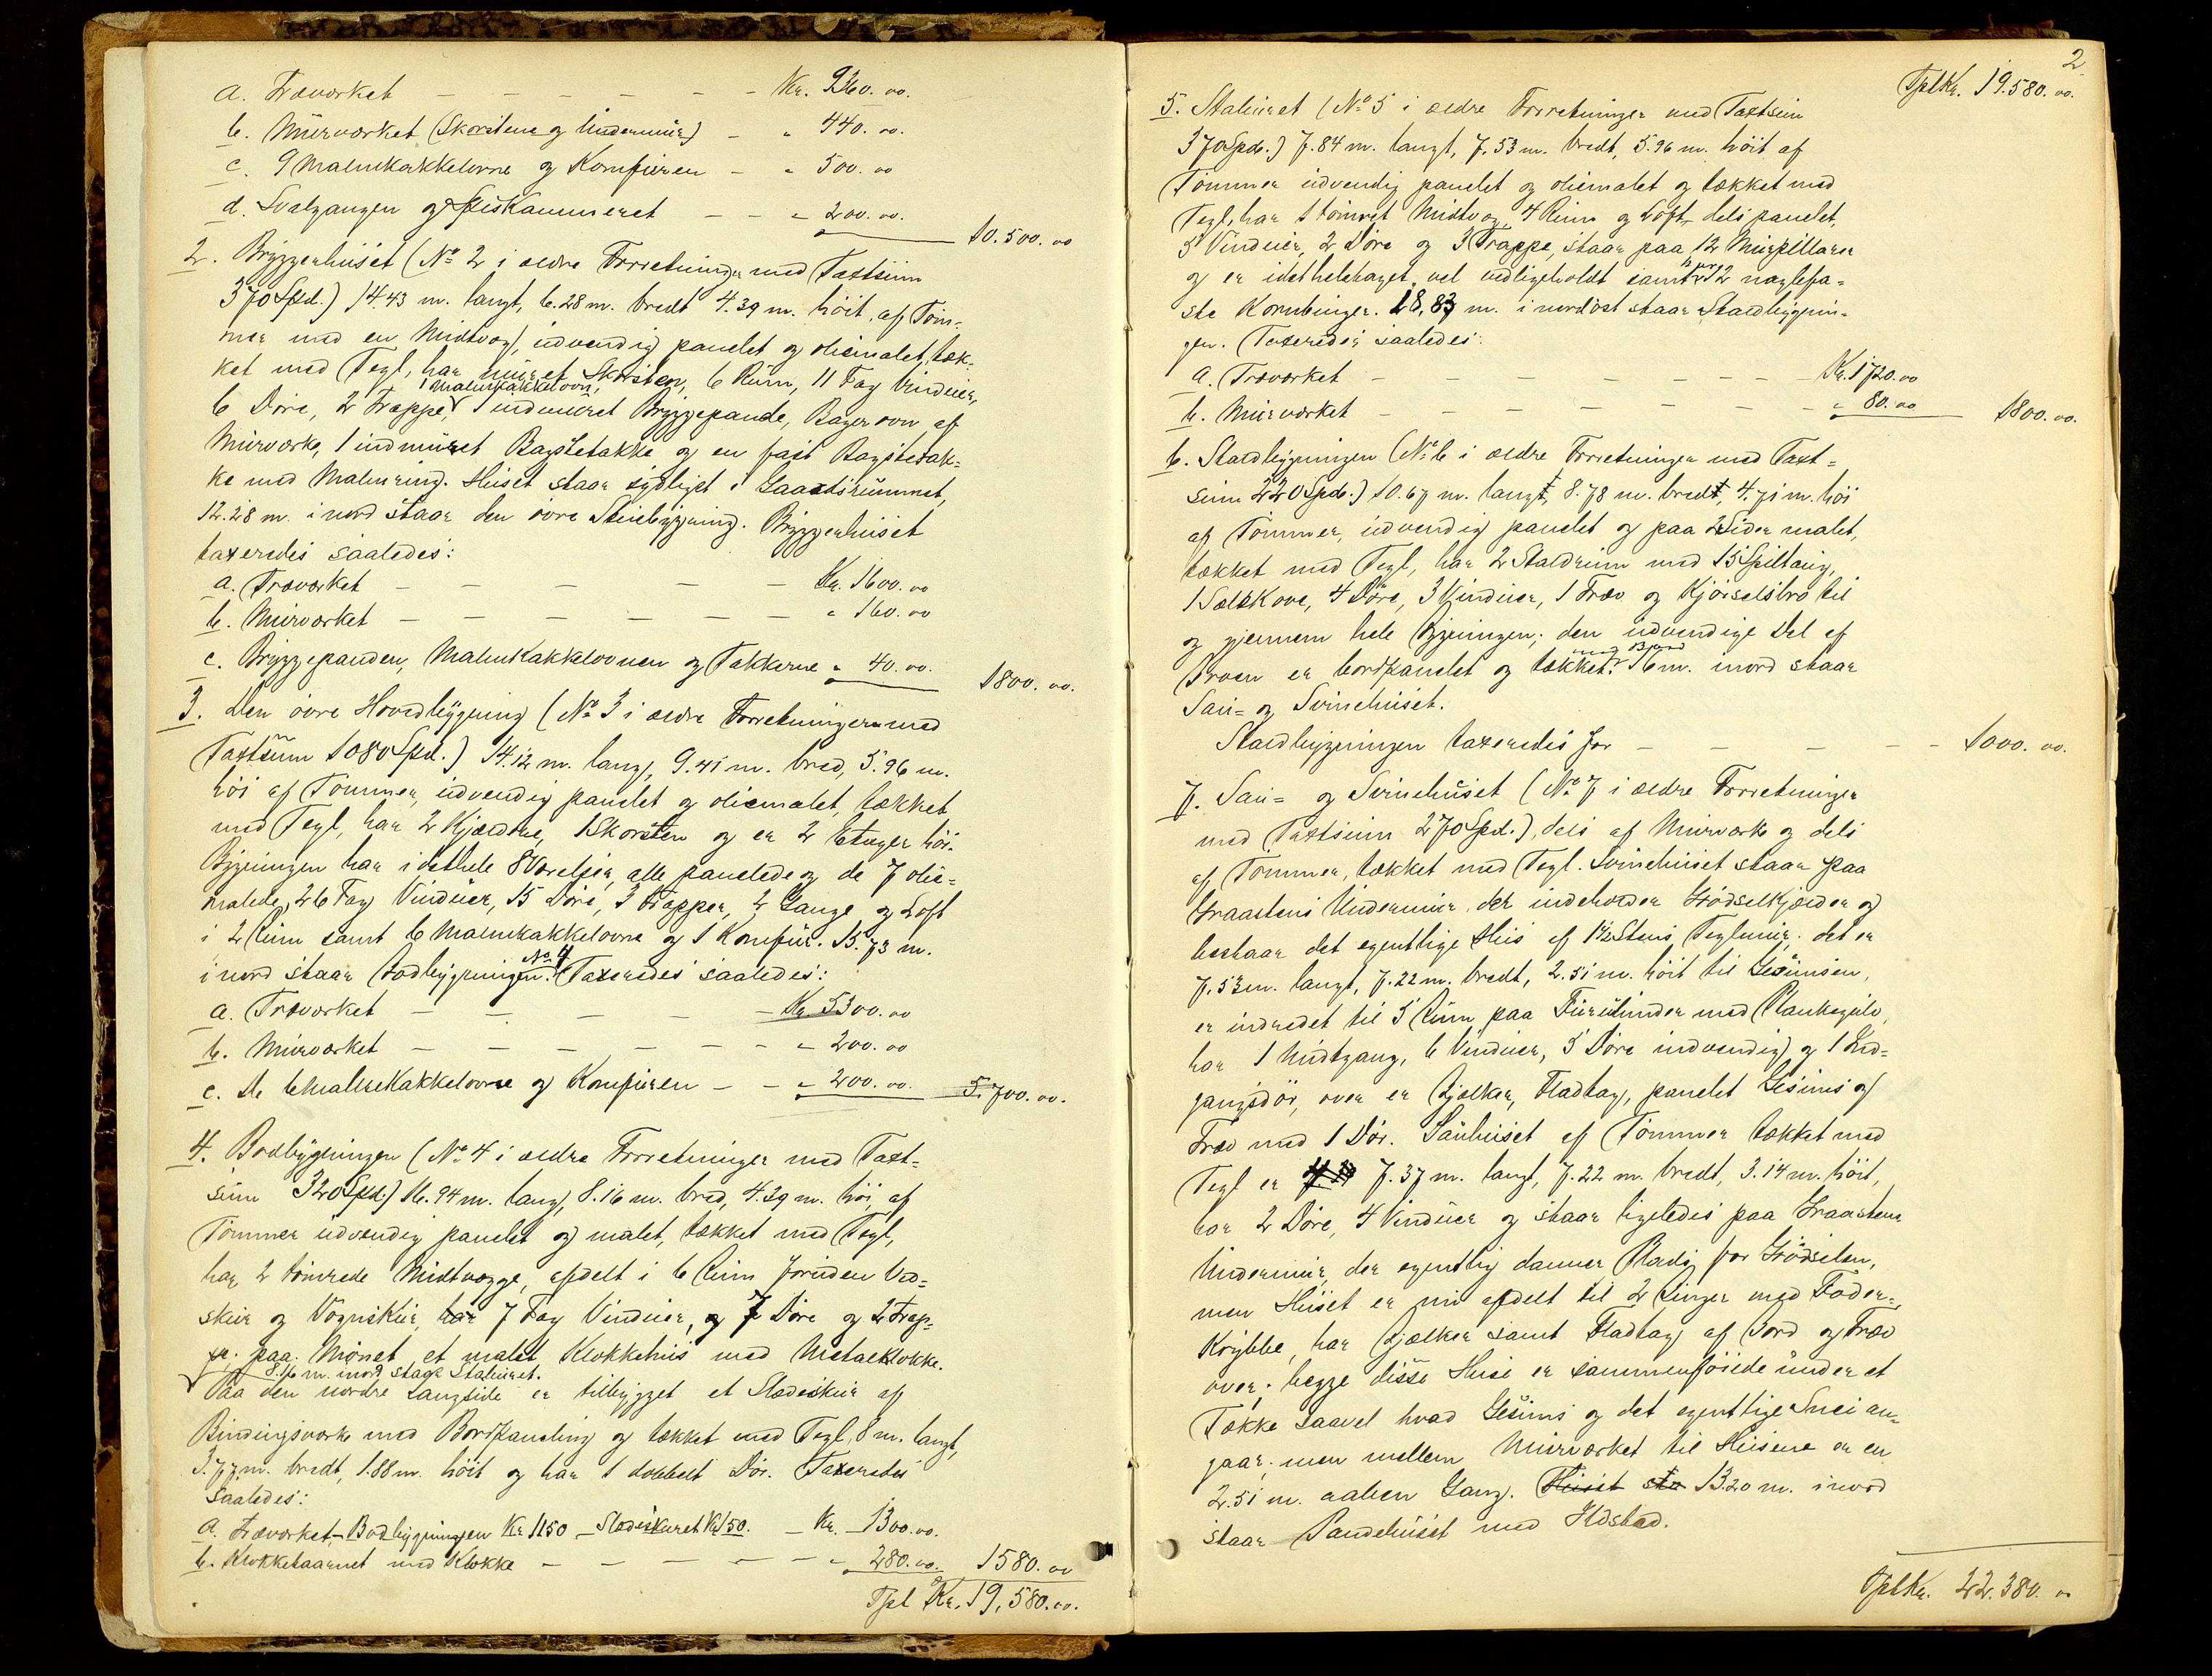 a. Træværket — — — — — Kr. 9360.00.
b. Murværket (Skorstene og Undermur) — " 440.00.
c. 9 Malmkakkelovne og Komfuren — " 500.00
d. Svalgangen og Spiskammeret — — " 200.00. 10.500.00
2. Bryggerhuset (No 2 i ældre Forretninger med Taxtsum
370 Spd.) 14.43 m. langt, 6.28 m. bredt 4.39 m. höit, af Töm=
mer med en Midtvæg, udvendig panelet og oliemalet, tæk=
ket med Tegl, har muret Skorsten, 6 Rum, 11 Fag Vinduer,
1 Malmkakkelovn,
6 Döre, 2 Trapper, 1 indmuret Bryggepande, Bagerovn af
Murværk, 1 indmuret Bagstetakke og en fast Bagstetak=
ke med Malmring. Huset staar sydligst i Gaardsrummet,
12.28 m. i nord staar den övre Stuebygning. Bryggerhuset
taxeredes saaledes:
a. Træværket — — — — — Kr. 1600.00
b. Murværket — — — — — — " 160.00
c. Bryggepanden, Malmkakkelovnen og Takkerne " 40.00. 1800.00.
3. Den övre Hovedbygning (No 3 i ældre Forretninger med
Taxtsum 1080 Spd.) 14.12 m. lang, 9.41 m. bred, 5.96 m.
höi af Tömmer, udvendig panelet og oliemalet, tækket
med Tegl, har 2 Kjældre, 1 Skorsten og er 2 Etager höi.
Bygningen har i dethele 8 Værelser, alle panelede og de 7 olie=
malede, 26 Fag Vinduer, 15 Döre, 3 Trapper, 2 Gange og Loft
i 2 Rum samt 6 Malmkakkelovne og 1 Komfur. 15.73 m.
No. 4
i nord staar Bodbygningen. Taxeredes saaledes:
a. Træværket — — — — — Kr. 5300.00
b. Murværket — — — — — — " 200.00
c. De 6 Malmkakkelovne og Komfuren — — " 200.00. 5.700.00.
4. Bodbygningen (No 4 i ældre Forretninger med Taxt=
sum 320 Spd.) 16.94 m. lang, 8.16 m. bred, 4.39 m. höi, af
Tömmer udvendig panelet og malet, tækket med Tegl,
har 2 tömrede Midtvægge, afdelt i 6 Rum foruden Ved=
skur og Vognskur, har 7 Fag Vinduer, og 7 Döre og 2 Trap=
per; paa Mönet et malet Klokkehus med Metalklokke.
8.16 m. i nord staar Staburet.
Paa den nordre Langside er tilbygget et Slædeskur af
Bindingsværk med Bordpaneling og tækket med Tegl, 8 m. langt,
3.77 m. bredt, 1.88 m. höit og har 1 dobbelt Dör. Taxeredes
saaledes:
a. Træværket, — Bodbygningen Kr 1150 — Slædeskuret Kr 150. — Kr. 1300.00.
b. Klokketaarnet med Klokke — — — — — " 280.00. 1580.00
Tpl Kr. 19,580.00.
2
TplKr. 19.580.00.
5. Staburet (No 5 i ældre Forretninger med Taxtsum
370 Spd.) 7.84 m. langt, 7.53 m. bredt, 5.96 m. höit af
Tömmer udvendig panelet og oliemalet og tækket med
Tegl, har 1 tömret Midtvæg, 4 Rum og Loft, dels panelet,
5 Vinduer, 2 Döre og 3 Trappe, staar paa 12 Murpillarer
og er idethelehaget vel vedligeholdt samt 12 naglefa=
ste Kornbinger. 18,83 m. i nordöst staar Staldbygnin=
gen. Taxeredes saaledes:
a. Træværket — — — — — — — Kr. 1720.00
b. Murværket — — — — — — — " 80.00 1800.00.
6. Staldbygningen (No 6 i ældre Forretninger med Taxt=
sum 220 Spd.) 10.67 m. langt, 8.78 m. bredt, 4.71 m. höi
af Tömmer, udvendig panelet og paa 2 Sider malet,
tækket med Tegl, har 2 Staldrum med 15 Spiltaug,
1 Sælekove, 4 Döre, 3 Vinduer, 1 Træv og Kjörselsbro til
og gjennem hele Bygningen; den udvendige Del af
med Bord
Broen er bordpanelet og tækket. 16 m. i nord staar
Sau= og Svinehuset.
Staldbygningen taxeredes for — — — — — 1000.00.
7. Sau= og Svinehuset (No 7 i ældre Forretninger
med Taxtsum 270 Spd.), dels af Murværk og dels
af Tömmer, tækket med Tegl. Svinehuset staar paa
Graastens Undermur, der indeholder Gjödselkjælder og
bestaar det egentlige Hus af 1½ Stens Teglmur; det er
7.53 m. langt, 7.22 m. bredt, 2.51 m. höit til Gesimsen,
er indredet til 5 Rum paa med Plankegulv,
har 1 Midtgang, 6 Vinduer, 5 Döre indvendig og 1 Ind=
gangsdör, over er Bjælker, Fladtag, panelet Gesims og
Træv med 1 Dör. Sauhuset af Tömmer tækket med
Tegl er 7.37 m. langt, 7.22 m. bredt, 3.14 m. höit,
har 2 Döre, 4 Vinduer og staar ligeledes paa Graastens
Undermur, der egentlig danner Plads for Gjödselen,
men Huset er nu afdelt til 2 Binger med Foder=
krybbe, har Bjælker samt Fladtag af Bord og Træv
over; begge disse Huse er sammenföiede under et
Tække saavel hvad Gesims og det egentlige an=
gaar; men mellem Murværket til Husene er en
2.51 m. aaben Gang. Huset sta 13.20 m. i nord
staar Pandehuset med Ildsted.
TplKr. 22.380.00